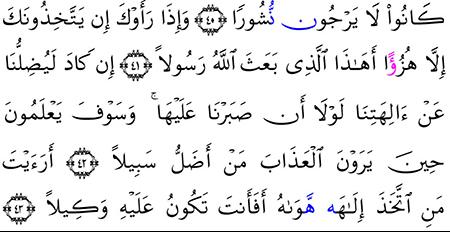 كَانُوا۟ لَا يَرْجُون نُّشُورًا ﴿٤٠﴾ وَإِذَا رَأَوْكَ إِن يَتَّخِذُونَكَ
إِلَّا هُزُؤًا أَهَـٰذَا ٱلَّذِى بَعَثَ ٱللَّهُ رَسُولاً ﴿٤١﴾ إِن كَادَ لَيُضِلُّنَا
عَنْ ءَالِهَتِنَا لَوْلَا أَن صَبَرْنَا عَلَيْهَا ۚ وَسَوْفَ يَعْلَمُونَ
حِينَ يَرَوْنَ ٱلْعَذَابَ مَنْ أَضَلُّ سَبِيلاً ﴿٤٢﴾ أَرَءَيْتَ
مَنِ ٱتَّخَذَ إِلَـٰهَه هَّوَىٰهُ أَفَأَنتَ تَكُونُ عَلَيْهِ وَكِيلاً ﴿٤٣﴾